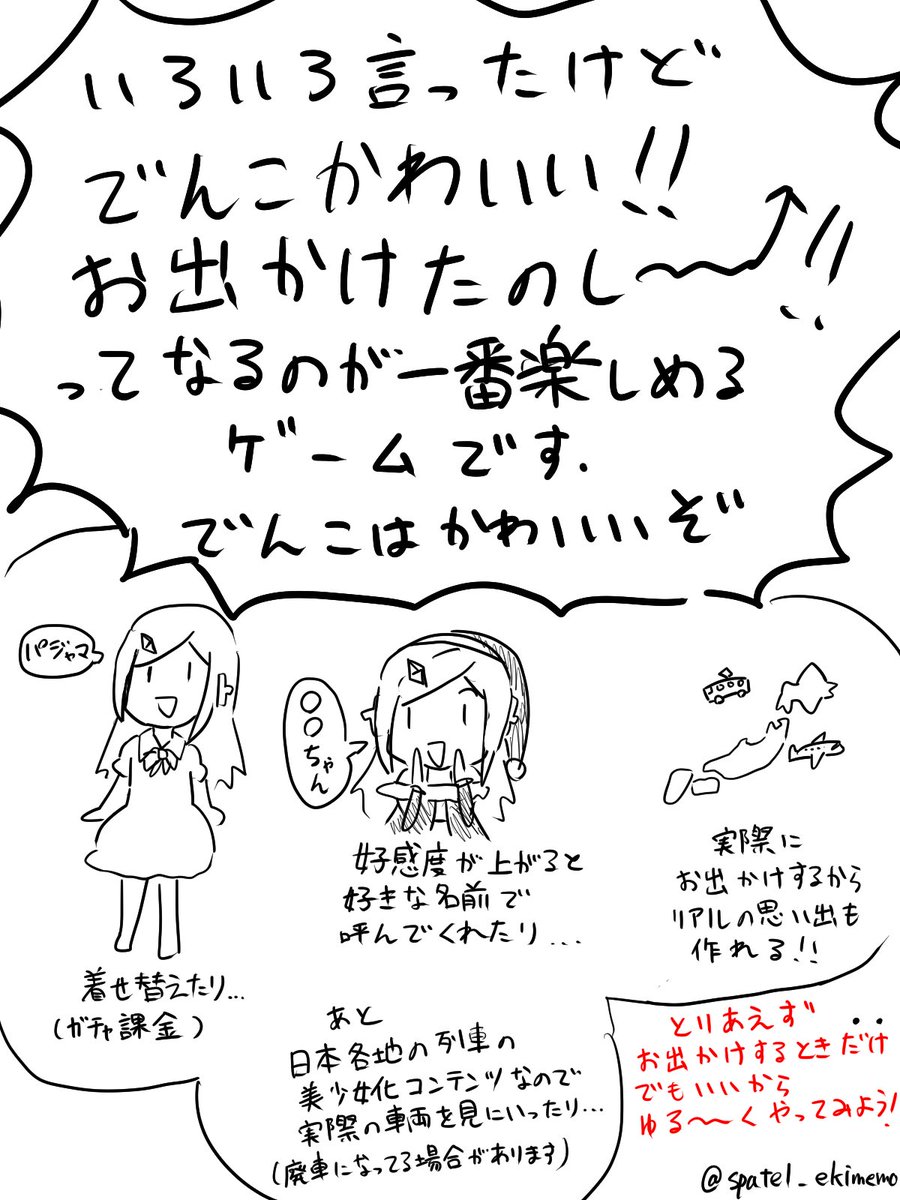 いろいろ言ったけど
でんこかわいい!!
お出かけたのし〜〜!!
ってなるのが一番楽しめる
ゲームです.
でんこはかわいいいぞ
パジャマ
着せ替えたり...
(ガチャ課金)
○○ちゃん
好感度が上がると
好きな名前で
呼んでくれたり...
実際に
お出かけするから
リアルの思い出も
作れる!!
あと
日本各地の列車の
美少女化コンテンツなので
実際の車両を見にいったり...
(廃車になってる場合があります)
とりあえず
お出かけするときだけ
でもいいから
ゆる〜〜くやってみよう!
@spatel_ekimemo